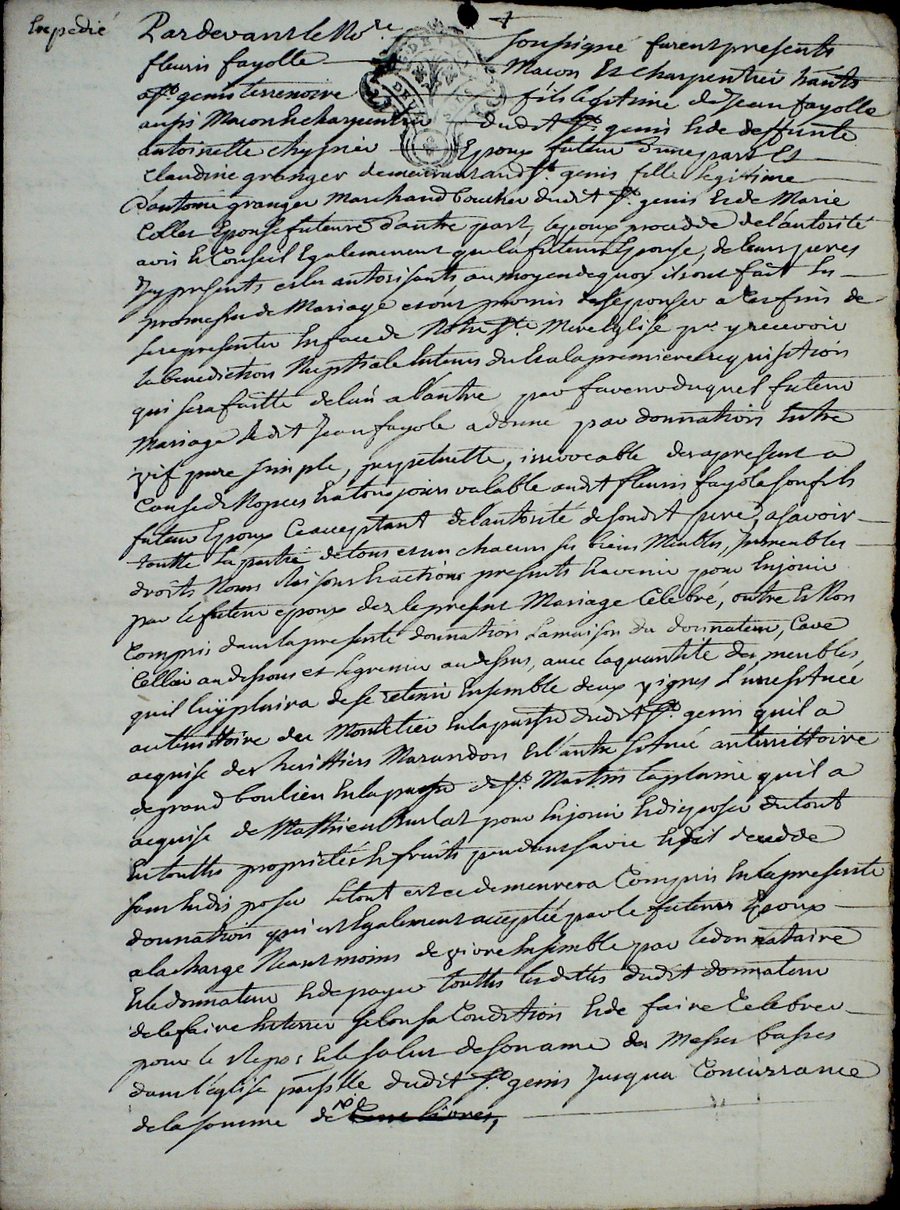 Expedié
Pardevant le No.re soussigné furent presents
fleuris fayolle Macon Et charpentier
a st. genis terrenoire fils legitime de Jean fayolle
aussi Macon & charpentier dudit st. genis & de deffunte
antoinette Epoux futur d'une part Et
Claudine granger demeurant audit st. genis fille legitime
d'antoine granger Marchand boucher dudit st. genis & de Marie
Collet Epouse future d'autre part, lepoux procedde de l'autorité
avis & Conseil Egalement que la future Epouse, de leurs peres
Icy presents & les autorisants au moyen de quoy ils ont fait les
promesses de Mariage & sont promis de s'epouser a les fins de
se representer En face de Notre ste Mere Eglise pr. y recevoir
la benediction Nuptiale Entems du & a la premiere requisition
qui sera faitte de l'un a l'autre par faveur duquel futur
Mariage ledit Jean fayole a donné par donnation Entre
vif pure simple, perpetuelle, irrevocable des a present a
Cause de Nopces & a toujours valable audit fleuris fayole son fils
futur Epoux Ce acceptant de l'autorité de sondit pere, a savoir
toutte la partie de tous et un chacuns ses biens Meubles, Immeubles
droits Noms raisons & actions presents & avenir pour En jouir
par le futur epoux dez le present Mariage Celebré, outre Et Non
Compris dans la presente donnation la maison du donnateur, Cave
Cellier au dessous et le grenier au dessus, avec la quantité des meubles
qu'il luy plaira de se retenir Ensemble deux vignes L'une scituée
au territtoire du Montelier En la parsse dudit st. genis qu'il a
acquise des herittiers Marandon & l'autre scituée au territtoire
de grand boulieu En la parsse de st. Martin laplaine qu'il a
acquise de Mathieu pour En jouir & disposer du tout
En touttes proprietés & fruits pendant sa vie & s'il decedde
sans En disposer le tout est et demeurera Compris En la presente
donnation qui est Egalement acceptée par le futur Epoux
a la charge Neantmoins de vivre Ensemble par le donnataire
& le donnateur & de payer touttes les dettes dudit donnateur
de le faire Enterrer selon sa Condition & de faire Celebrer
pour le repos & le salut de son ame des Messes basses
dans l'Eglise parsslle dudit st. genis Jusqu'a Concurrance
de la somme de